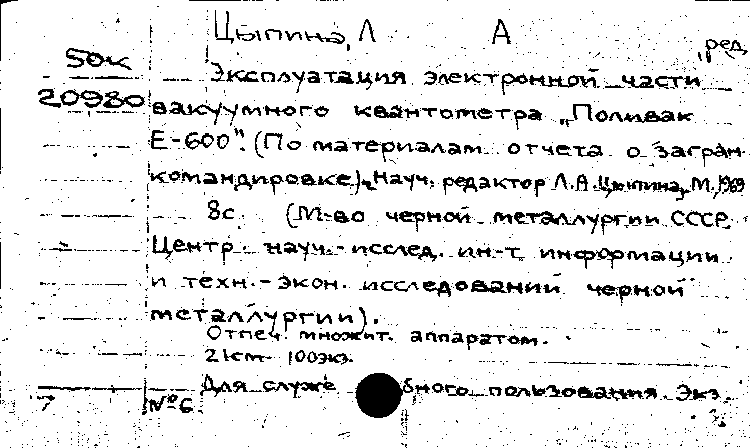 Цыпина, Л А
, ред.
50к
20980
Эксплуатация электронной части
вакуумного квантометра „Поливак
Е-600". (По материалам отчета о загран
командировке). Науч. редактор Л.А. Цыпина, М, 1969
8с. (М-во черной металлургии СССР.
Центр. науч.-исслед. ин-т информации
и техн.-экон. исследований черной
металлургии).
Отпеч. множит. аппаратом.
100экз.
Для служебного пользования. Экз.
7 №6.